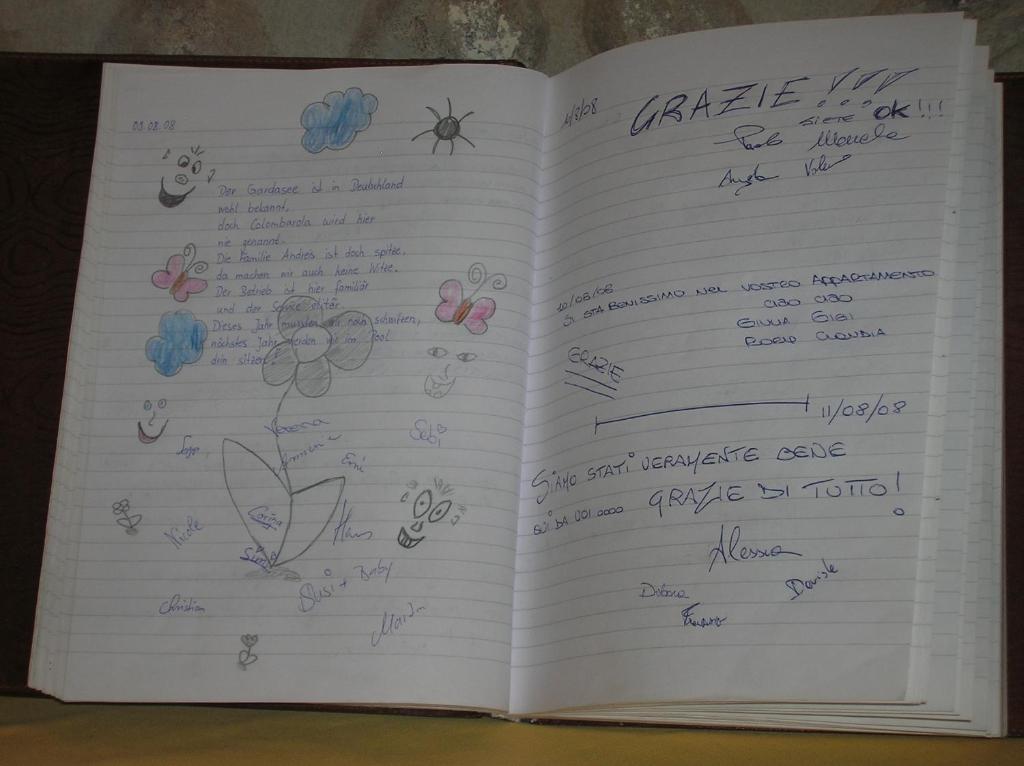 08.08.08
Der Gardasee ist in Deutschland
wohl bekannt,
doch Colombarola wird hier
nie genannt.
Die Familie Andreis ist doch spitze,
da machen wir auch keine Witze.
Der Betrieb ist hier familiär
und der Service elitär.
Dieses Jahr mussten wir noch schwitzen,
nächstes Jahr werden wir im Pool
drin sitzen!
Verena
Sebi
Emi
Carina
Nicole
Hans
Susi + Baby
Christian
GRAZIE !!!
SIETE OK!!!
Paolo Manuela
Angela
10/08/08
SI STA BENISSIMO NEL VOSTRO APPARTAMENTO
CIAO CIAO
GIULIA GIGI
CLAUDIA
GRAZIE
11/08/08
SIAMO STATI VERAMENTE BENE
QUI DA VOI.... GRAZIE DI TUTTO!
Alessia
Debora Davide